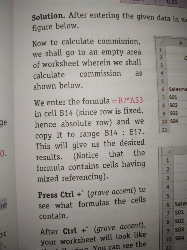 Solution. After entering the given data in
figure below.
Now to calculate commission,
we shall go to an empty area
of worksheet wherein we shall
calculate commission as
shown below.
We enter the formula =B7*A$3
in cell B14 (since row is fixed,
hence absolute row) and we
copy it to range B14 : E17.
This will give us the desired
results. (Notice that the
formula contains cells having
mixed referencing).
Press Ctrl + ` (grave accent) to
see what formulas the cells
contain.
After Ctrl + ` (grave accent),
your worksheet will look like
You can see the